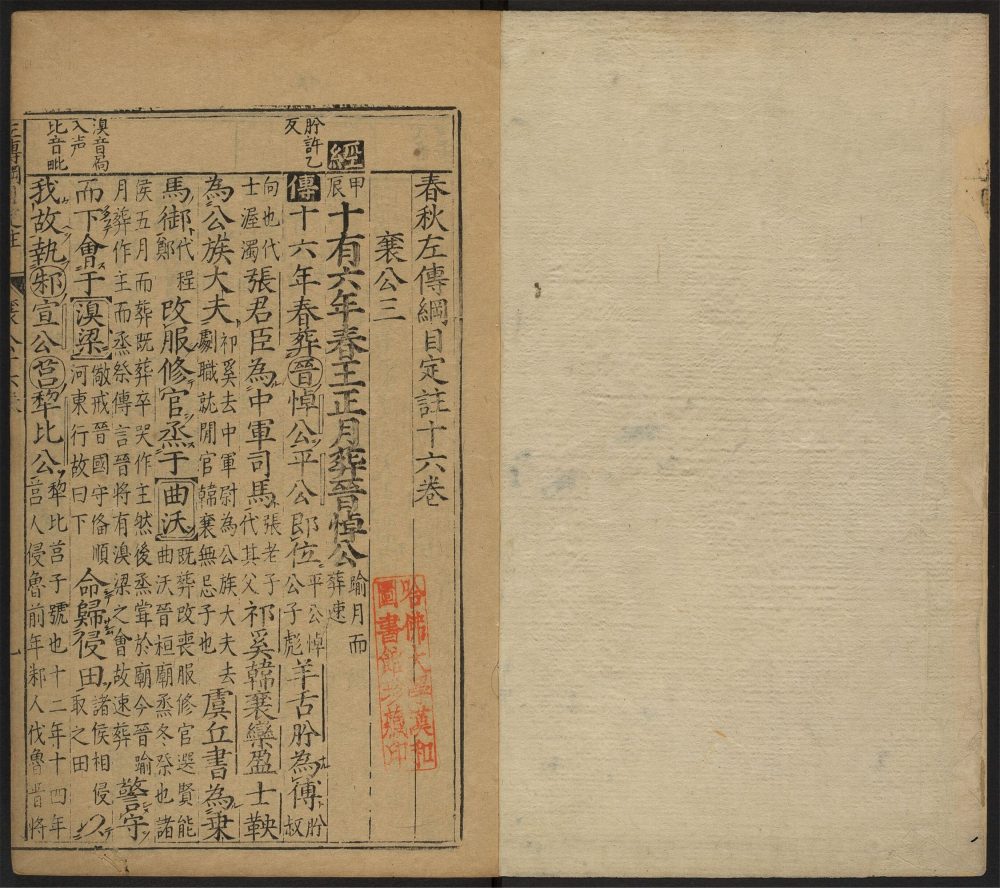 春秋左傳綱目定註十六卷
襄公三
經
甲辰
十有六年春王正月葬晉悼公
踰月而
葬速
肸許乙
反
傳
十六年春葬晉悼公平公即位
平公悼
公子彪
羊舌肸為傅
肸叔
向也代
士渥濁
張君臣為中軍司馬
張老子
代其父
祁奚韓襄欒盈士鞅
為公族大夫
祁奚去中軍尉為公族大夫去
劇職就閒官韓襄無忌子也
虞丘書為乗
馬御
代程
鄭
改服修官烝于曲沃
既葬改喪服修官選賢能
曲沃晉桓廟烝冬祭也諸
侯五月而葬既葬卒哭作主然後烝甞於廟今晉踰
月葬作主而烝祭傳言晉將有溴梁之會故速葬
警守
而下會于溴梁
儆戒晉國守俻順
河東行故曰下
命歸侵田
諸侯相侵
取之田
以
溴音局
入声
比音毗
我故執邾宣公莒犂比公
犂比莒子號也十二年十四年
莒人侵魯前年邾人伐魯晋將
哈佛大學漢和
圖書館珍藏印